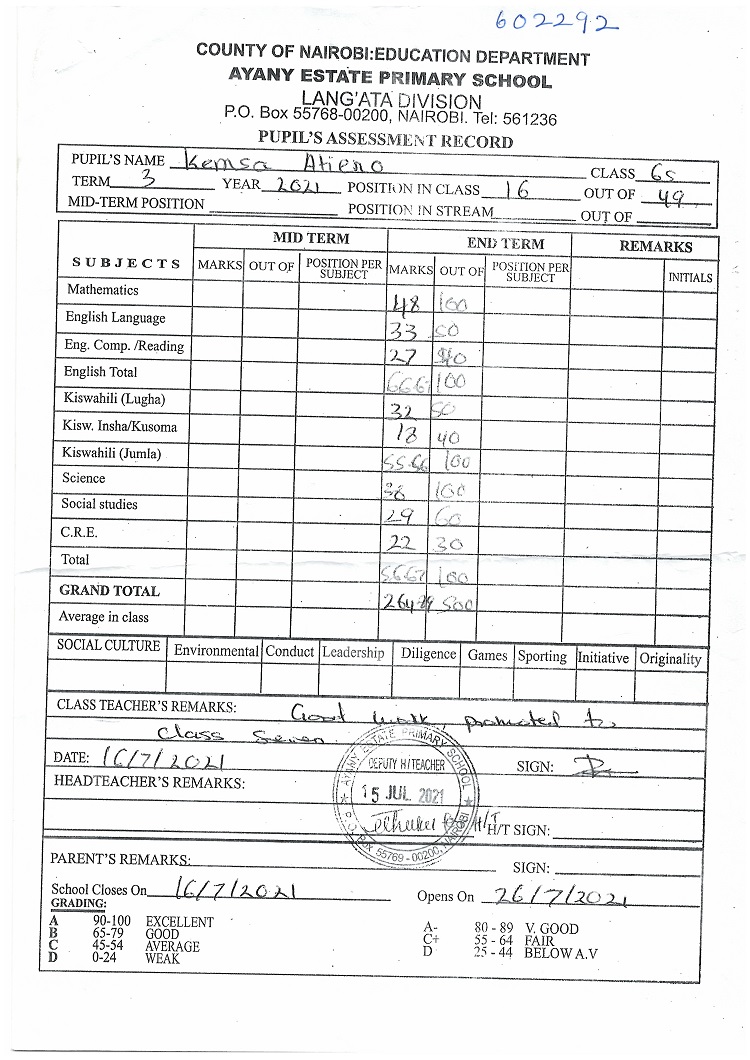 602292
COUNTY OF NAIROBI:EDUCATION DEPARTMENT
AYANY ESTATE PRIMARY SCHOOL
LANG'ATA DIVISION
P.O. Box 55768-00200, NAIROBI. Tel: 561236
PUPIL'S ASSESSMENT RECORD
PUPIL'S NAME Kemsa Atieno CLASS 6S
TERM 3 YEAR 2021 POSITION IN CLASS 16 OUT OF 49
MID-TERM POSITION POSITION IN STREAM OUT OF
MID TERM END TERM REMARKS
SUBJECTS MARKS OUT OF POSITION PER SUBJECT MARKS OUT OF POSITION PER SUBJECT INITIALS
Mathematics 48 100
English Language 33 50
Eng. Comp. /Reading 27 40
English Total 66.67 100
Kiswahili (Lugha) 32 50
Kisw. Insha/Kusoma 18 40
Kiswahili (Jumla) 55.56 100
Science 38 100
Social studies 29 60
C.R.E. 22 30
Total 56.67 100
GRAND TOTAL 264.89 500
Average in class
SOCIAL CULTURE Environmental Conduct Leadership Diligence Games Sporting Initiative Originality
CLASS TEACHER'S REMARKS: Good work, promoted to
class seven
DATE: 16/7/2021 SIGN:
HEADTEACHER'S REMARKS:
AYANY ESTATE PRIMARY SCHOOL
DEPUTY H/TEACHER
15 JUL 2021
P.O. Box 55769-00200, NAIROBI
H/T SIGN:
PARENT'S REMARKS: SIGN:
School Closes On 16/7/2021 Opens On 26/7/2021
GRADING:
A 90-100 EXCELLENT A- 80 - 89 V. GOOD
B 65-79 GOOD C+ 55 - 64 FAIR
C 45-54 AVERAGE D 25 - 44 BELOW A.V
D 0-24 WEAK